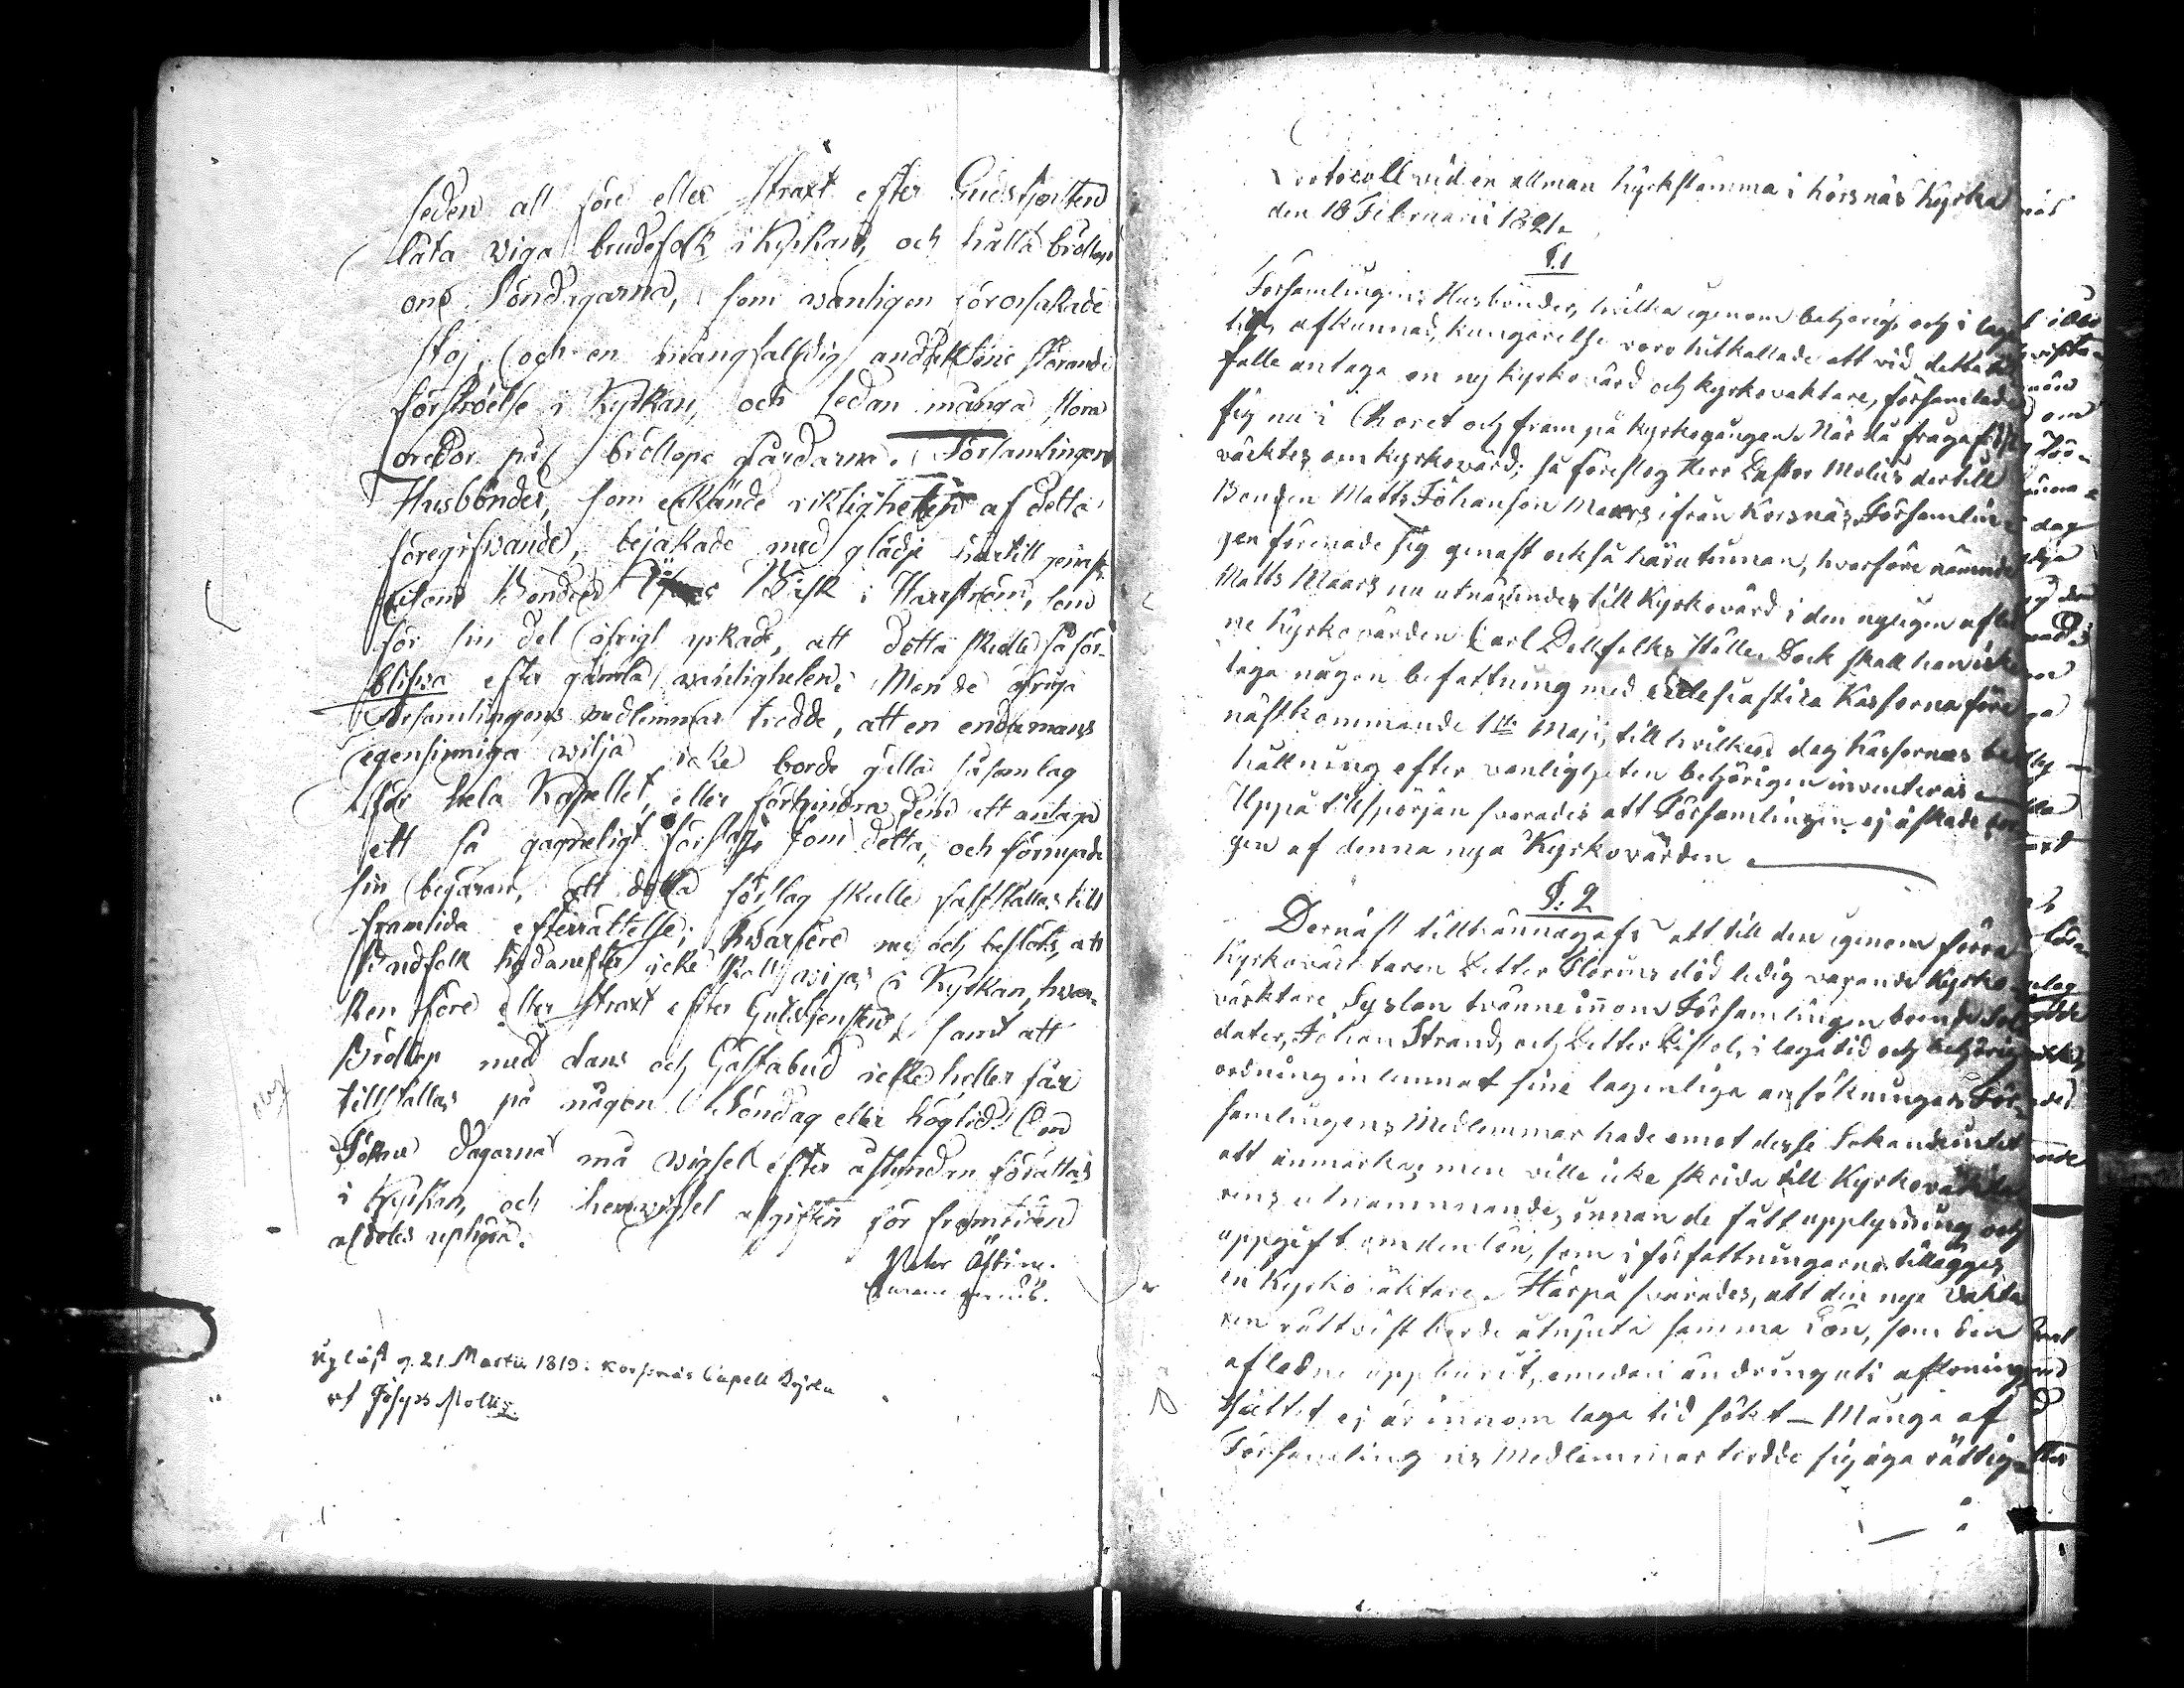 seden att före eller straxt efter Gudstjensten
låta viga brudefolk i Kyrkan, och hålla bröllop
om Söndagarna, som vanligen förorsakade
stoj, och en mångfalldig andakten störande
förströelse i Kyrkan, och sedan många stora
oredor på bröllops gårdarna. Församlingens
Husbönder, som erkände riktigheten af detta
föregifwande, bejakade med glädje härtill
Bonden Bisk i Harrström, som
för sin del öfrigt yrkade, att detta skulle få för-
blifwa efter gamla wanligheten. Men de öfriga
Församlingens medlemmar trodde, att en enda mans
egensinniga wilja icke borde gälla såsom lag
för hela Kapellet, eller förhindra dem att antaga
ett så gagneligt förslag som detta, och förnyade
sin begäran, att detta förslag skulle fastställas till
framtida efterrättelse; hwarföre nu och beslöts, att
Brudfolk hädanefter icke skall wijas i Kyrkan, hwar-
ken före eller straxt efter Gudstjensten, samt att
Bröllop med dans och Gästabud icke heller får
tillställas på någon Söndag eller högtid. Om
Sökne dagarna må wigsel efter åstundan förättas
i Kyrkan, och hemwigsel afgiften för framtiden
aldeles uphöra.
Petter
Upläst d. 21 Martii 1819. i Korsnäs Capell Kyrka
af Joseph Molliis.
Protocoll vid en allmän Kyrkstämma i Korsnäs Kyrka
den 18 Februarii 1821.
§. 1
Församlingens Husbönder, hvilka igenom behörig och i laga
tid afkunnad, kungörelse voro hitkallade att vid detta till-
fälle antaga en ny Kyrkovärd och Kyrkovaktare, församlade
sig nu i Choret och fram på kyrkogången. När då fråga först
väcktes om Kyrkovärd; så föreslog Herr Pastor Molliis dertill
Bonden Matts Johanson Maars ifrån Korsnäs. Församlin-
gen förenade sig genast också härutinnan, hvarföre nämnde
Matts Maars nu utnämndes till Kyrkovärd i den nyligen afled-
ne Kyrkovärden Carl Dallfolks ställe. Dock skall han icke
taga någon befattning med ecclesiastika Kassorna före
nästkommande 1ste Maji, till hvilken dag Kassornas be-
hållning efter vanligheten behörigen inventeras.
Uppå tillspörjan svarades att Församlingen ej äskade bor-
gen af denna nya Kyrkovärden.
§. 2
Dernäst tillkännagafs att till den igenom förra
Kyrkovaktaren Petter Florins död ledig varande Kyrko-
vaktare Syslan tvänne innom Församlingen boende Sol-
dater, Johan Strand, och Petter Pistol, i laga tid och behörig
ordning inlemnat sine lagenliga ansökningar. För-
samlingens Medlemmar hade emot desse Sökande intet
att anmärka, men ville icke skrida till Kyrkovakta-
rens utnämnande, innan de fått upplysning och
uppgift om den lön, som i författningarna tillägges
en Kyrkovaktare. Härpå svarades, att den nya Vakta-
ren rättvist borde åtnjuta samma Lön, som den
afledne uppburit, emedan ändring uti aflönings
sättet ej är innom laga tid sökt – Många af
Församlingens Medlemmar trodde sig äga rättig-